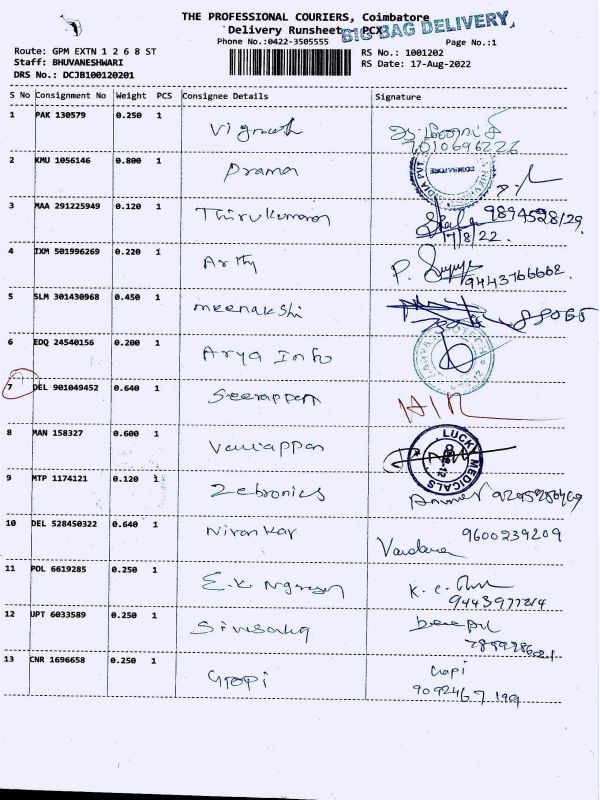 THE PROFESSIONAL COURIERS, Coimbatore
Delivery Runsheet - PCX
BIG BAG DELIVERY,
Phone No.:0422-3505555
Page No.:1
Route: GPM EXTN 1 2 6 8 ST
RS No.: 1001202
Staff: BHUVANESHWARI
RS Date: 17-Aug-2022
DRS No.: DCJB100120201
S No Consignment No Weight PCS Consignee Details Signature
1 PAK 130579 0.250 1 Vignesh
7010696226
2 KMU 1056146 0.800 1 Prama
COIMBATORE
3 MAA 291225949 0.120 1 Thirukumaran 9894528129
17/8/22.
4 IXM 501996269 0.220 1 Arthy P.
9443766662.
5 SLM 301430968 0.450 1 meenakshi
6 EDQ 24540156 0.200 1 Arya Info
7 DEL 901049452 0.640 1
8 MAN 158327 0.600 1
LUCKY MEDICALS
CBE-12
9 MTP 1174121 0.120 1 Zebronics
10 DEL 528450322 0.640 1 Nirankar 9600239209
Vandana
11 POL 6619285 0.250 1 E.K. K. C.
12 UPT 6033589 0.250 1
13 CNR 1696658 0.250 1 Gopi Gopi
9092467199